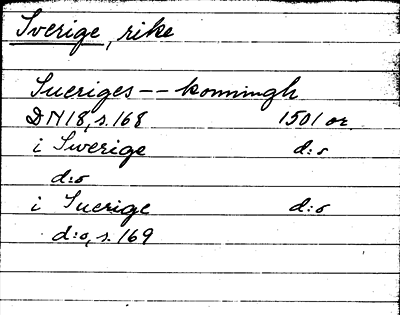 Sverige, rike
Sueriges -- konningh
DN18, s. 168 1501 or.
i Swerige d:o
d:o
i Suerige d:o
d:o, s. 169